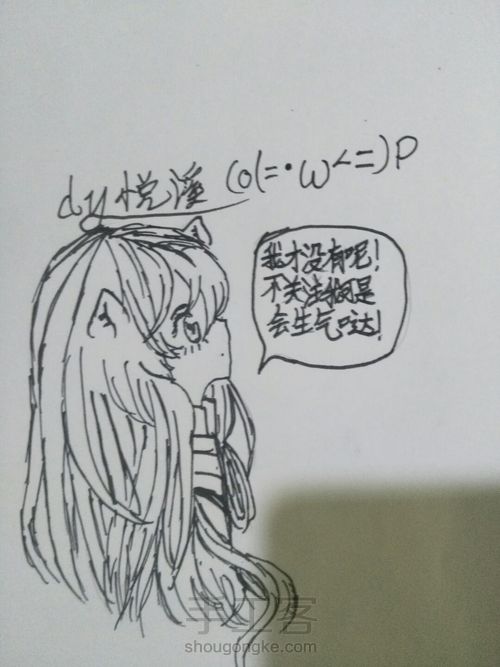 dy悦溪 (o(=•ω<=)P
我才没有呢!
不关注我可是
会生气哒!
手工客
shougongke.com